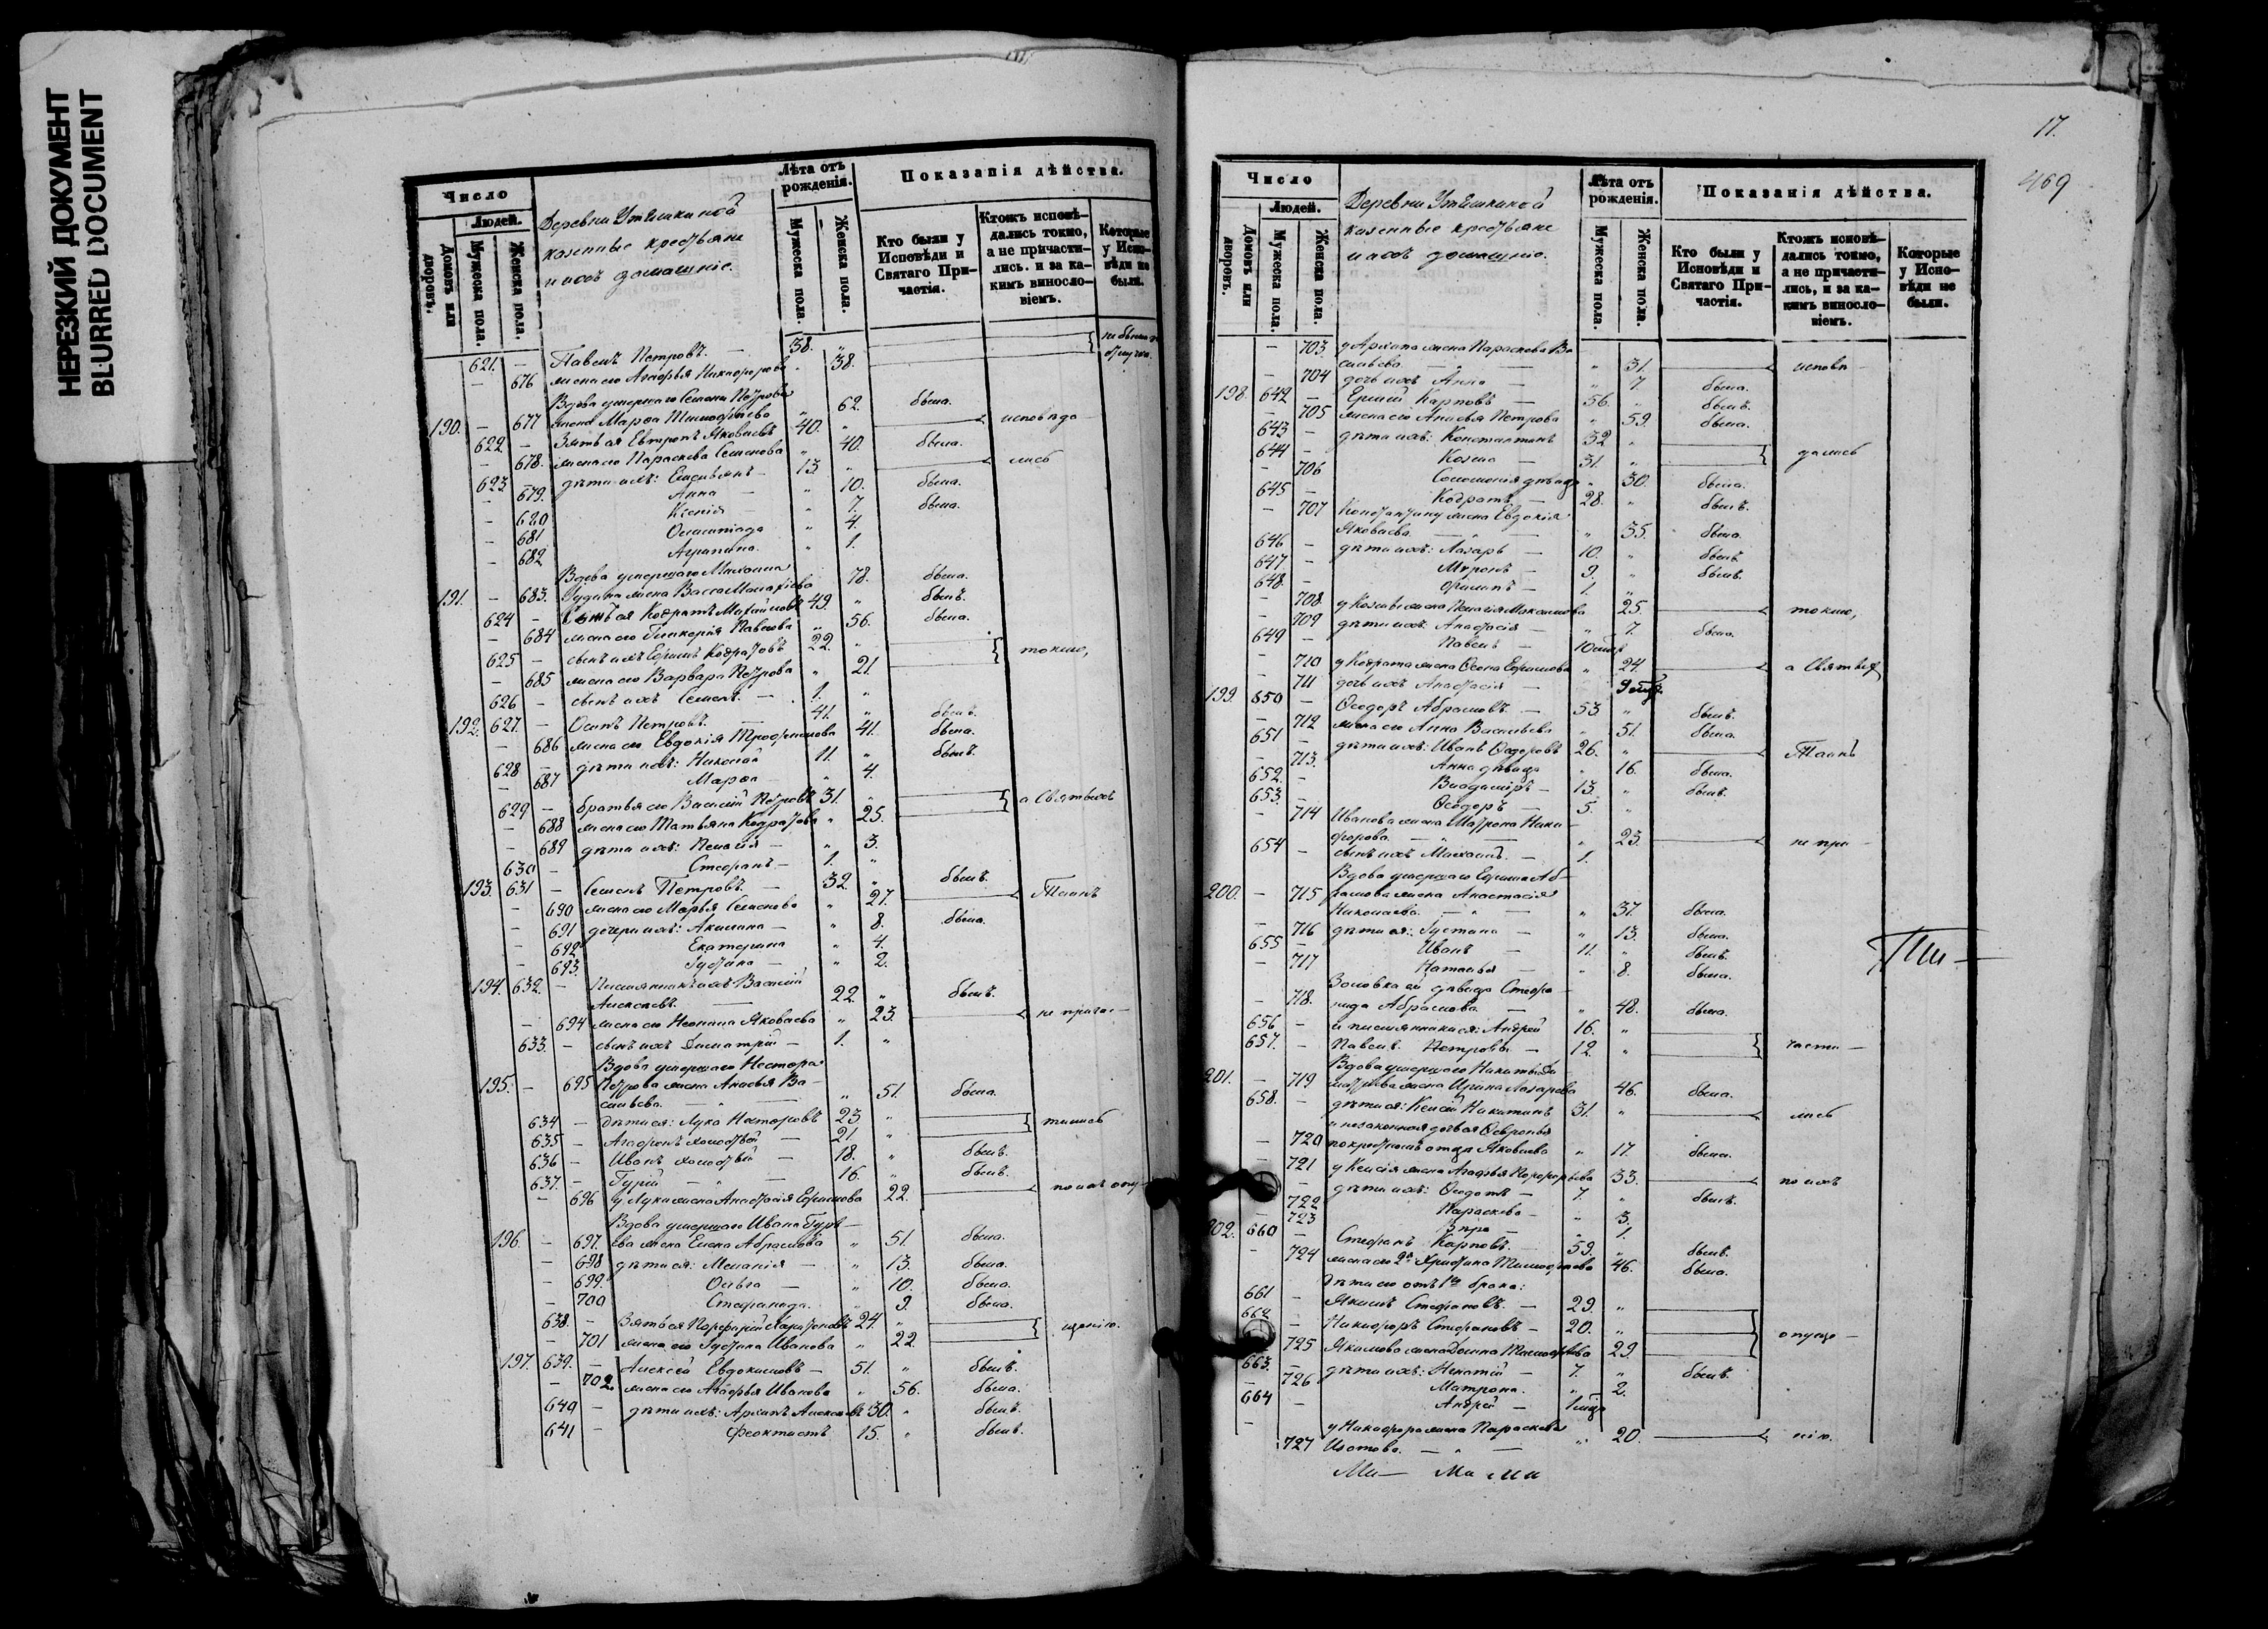 НЕРЕЗКИЙ ДОКУМЕНТ
BLURRED DOCUMENT
Число
Людей.
Домовъ или дворовъ.
Мужеска пола.
Женска пола.
казенные крестьяне
и ихъ домашніе.
Лѣта отъ рожденія.
Мужеска пола.
Женска пола.
Показанія дѣйства.
Кто были у Исповѣди и Святаго Причастія.
Ктожъ исповѣдались токмо, а не причастились. и за какимъ винословіемъ.
Которые у Исповѣди не были.
621. — Павелъ Петровъ. — 38. „
— 676 жена его Агафья Никифорова „ 38.
Вдова умершаго Семена Петрова
190. — 677 жена Марѳа Тимофѣева „ 62. была.
622 — Зять ея Евтропъ Яковлевъ 40. „ исповѣда
— 678. жена его Параскева Семенова „ 40. была.
623 — дѣти ихъ: Емельянъ — 13 „ лись
— 679. Анна — „ 10. была.
— 680 Ксенія — „ 7. была.
— 681 Олимпіада „ 4.
— 682 Агрипина. „ 1.
Вдова умершаго Михаила
191. — 683. жена Васса „ 78. была.
624 — Кодратъ Михайловъ 49. „ былъ.
— 684 жена его Гликерія Павлова „ 56. была.
625 — сынъ ихъ Ефимъ Кодратовъ 22. „ токмо,
— 685 жена его Варвара Петрова „ 21.
626 — сынъ ихъ Семенъ. — 1. „
192. 627. — Осипъ Петровъ. — 41. „ былъ.
— 686 жена его Евдокія Трофимова 41. была.
628 — дѣти ихъ: Николай 11. „ былъ.
— 687 Марѳа — „ 4.
629 — братья его Василій Петровъ 31. „ а Святыхъ
— 688 жена его Татьяна Кодратова „ 25.
— 689 дѣти ихъ: Пелагія — „ 3.
630 — Стефанъ — 1. „
193. 631 — Семенъ Петровъ. — 32. „ былъ.
— 690 жена его Марья Семенова „ 27. Таинъ
— 691 дочери ихъ: Акилина — „ 8. была.
— 692 Екатерина „ 4.
— 693. Іустина — „ 2.
194. 632. — Племянникъ ихъ Василій
Алексѣевъ. — 22. „ былъ.
— 694 жена его Неонила Яковлева „ 23. не прича—
633. — сынъ ихъ Димитрій — 1. „
Вдова умершаго Нестора
195. — 695 Петрова жена Анисья Ва—
сильева. — „ 51. была.
634 — дѣти ея: Лука Несторовъ 23 „ тились
635 — Агафонъ холостой — 21 „
636 — Иванъ холостой — 18. „ былъ.
637. — Гурій — „ — 16. „ былъ.
— 696 у Луки жена Анастасія Ефимова 22. по ихъ опу
Вдова умершаго Ивана Гурь—
196. — 697. ева жена Елена Абрамова „ 51. была.
— 698 дѣти ея: Меланія — „ 13. была.
— 699. Ольга — „ 10. была.
— 700 Стефанида. „ 9. была.
638. — Зять ея Порфирій 24. „ щенію.
— 701 жена его Іустина Иванова „ 22.
197. 639. — Алексѣй Евдокимовъ — 51. „ былъ.
— 702. жена его Агафья Иванова „ 56. была.
640 — дѣти ихъ: Архипъ Алексѣевъ 30. „ былъ.
641 — Феоктистъ 15. „ былъ.
17.
469
Число
Людей.
Домовъ или дворовъ.
Мужеска пола.
Женска пола.
казенные крестьяне
и ихъ домашніе.
Лѣта отъ рожденія.
Мужеска пола.
Женска пола.
Показанія дѣйства.
Кто были у Исповѣди и Святаго Причастія.
Ктожъ исповѣдались токмо, а не причастились, и за какимъ винословіемъ.
Которые у Исповѣди не были.
— 703 у Архипа жена Параскева Ва
сильева. — „ 31. исповѣ—
— 704 дочь ихъ Анна — „ 7 была.
198. 642 — Ермій Карповъ — 56. „ былъ.
— 705 жена его Анисья Петрова „ 59. была.
643 — дѣти ихъ: Константинъ 32 „
644 — Козма — 31. „ дались
— 706 Соломонія дѣвица „ 30. была.
645 — Кодратъ — 28. „ былъ.
— 707 Константину жена Евдокія
Яковлева. — „ 35. была.
646 — дѣти ихъ: Лазарь — 10. „ былъ
647 — Миронъ — 9. „ былъ.
648. — Филипъ — 1. „
— 708. у Козмы жена Пелагія Максимова 25. токмо,
— 709 дѣти ихъ: Анастасія — „ 7. была.
649 — Павелъ —
— 710 у Кодрата жена Ѳекла Ефимова „ 24. а Святыхъ
— 711 дочь ихъ Анастасія —
199. 650 — Ѳеодоръ Абрамовъ. — 53 „ былъ.
— 712 жена его Анна Васильева „ 51. была.
651 — дѣти ихъ: Иванъ Ѳедоровъ 26. „ Таинъ
— 713. Анна дѣвица „ 16. была.
652. — Владиміръ — 13. „ былъ.
653. — Ѳеодоръ — 5. „
— 714 Иванова жена Матрона Ники—
форова. — „ 23. не при—
654 — сынъ ихъ Михаилъ. — 1.
Вдова умершаго Ефима Аб—
200. — 715 рамова жена Анастасія
Николаева. — „ — „ 37. была.
— 716 дѣти ея: Іустина — „ 13. была.
655 — Иванъ — 11. „ былъ.
— 717 Наталья — „ 8. была.
Золовка ея дѣвица Стефа—
— 718. нида Абрамова. — „ 48. была.
656 — и племянники ея: Андрей 16. „
657. — Павелъ Петровы. — 12. „ части—
Вдова умершаго Никиты
201. — 719 жена Ирина Лазарева 46. была.
658. — Никитинъ 31. „ лись
и незаконная дочь ея
— 720 по крестномъ отцѣ Яковлева „ 17. была.
— 721 жена Агафья 33. по ихъ
— дѣти ихъ: Ѳеодотъ — 7. „ былъ.
— 722 Параскева — „ 3.
— 723 „ 1.
202. 660 — Стефанъ Карповъ. — 59. „ былъ.
— 724 жена его 2я Христина Тимофеева 46. была.
Дѣти его отъ 1го брака:
661 — Якимъ Стефановъ. — 29. „
662 — Никифоръ Стефановъ — 20. „
— 725 Якимова жена Домна Тимофеева 29. опуще—
663. — дѣти ихъ: Игнатій — 7. „ былъ.
— 726 Матрона. „ 2.
664 — Андрей —
у Никифора жена Параскева
— 727 Изотова. — „ — „ 20. нію.